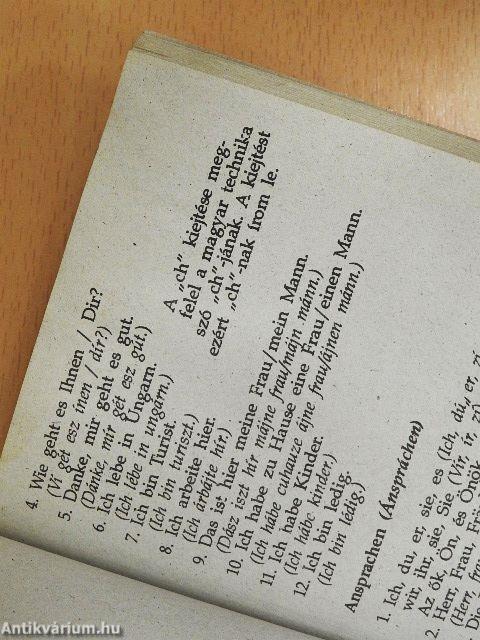 4. Wie geht es Ihnen / Dir?
(Vi gét esz ínen / dír?)
5. Danke, mir geht es gut.
(Dánke, mír gét esz gút.)
6. Ich lebe in Ungarn.
(Ich lébe in ungarn.)
7. Ich bin Turist.
(Ich bin turiszt.)
8. Ich arbeite hier.
(Ich árbájte hír.)
9. Das ist hier meine Frau/mein Mann.
(Dász iszt hír májne frau/májn mánn.)
10. Ich habe zu Hause eine Frau/einen Mann.
(Ich hábe cuhauze ájne frau/ájnen mánn.)
11. Ich habe Kinder.
(Ich hábe kinder.)
12. Ich bin ledig.
(Ich bin lédig.)
A „ch” kiejtése meg-
felel a magyar technika
szó „ch”-jának. A kiejtést
ezért „ch”-nak írom le.
Ansprachen (Ánspráchen)
1. Ich, du, er, sie, es (Ich, dú, er, zí
wir, ihr, sie, Sie (Vir, ír, zí
Az ők, Ön, és Önök
2. Herr, Frau,
(Herr,
Antikvárium.hu